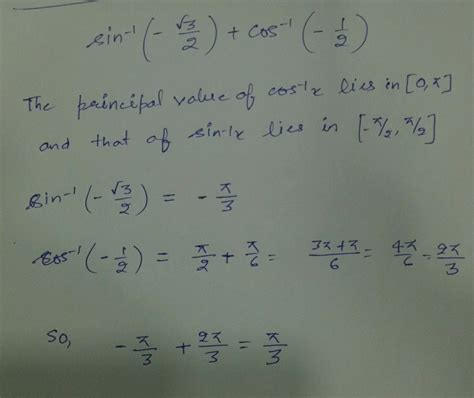 sin⁻¹(-√3/2) + cos⁻¹(-1/2)
The principal value of cos⁻¹x lies in [0,π]
and that of sin⁻¹x lies in [-π/2, π/2]
sin⁻¹(-√3/2) = -π/3
cos⁻¹(-1/2) = π/2 + π/6 = (3π+π)/6 = 4π/6 = 2π/3
So, -π/3 + 2π/3 = π/3